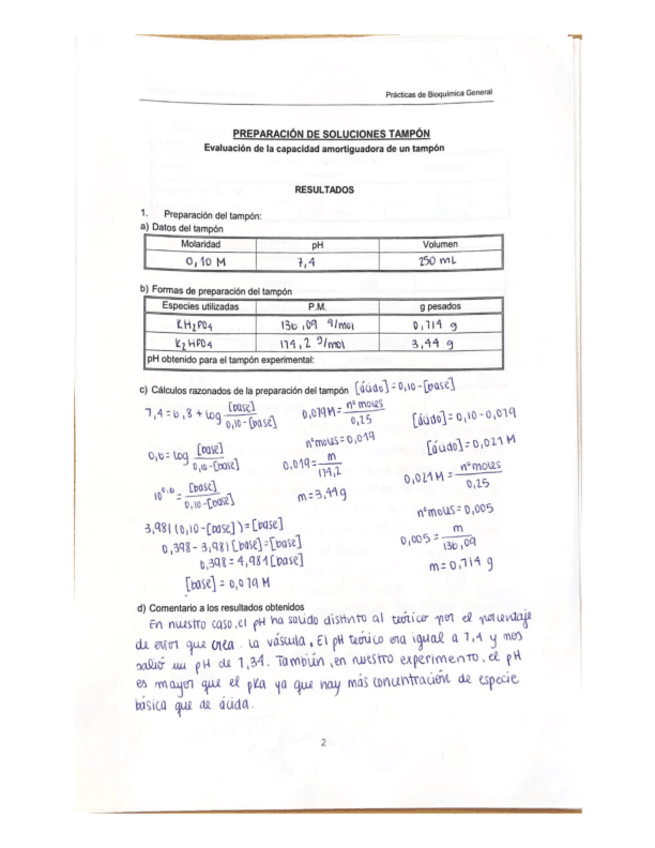 Prácticas de Bioquímica General
PREPARACIÓN DE SOLUCIONES TAMPÓN
Evaluación de la capacidad amortiguadora de un tampón
RESULTADOS
1. Preparación del tampón:
a) Datos del tampón
Molaridad pH Volumen
0,10 M 7,4 250 mL
b) Formas de preparación del tampón
Especies utilizadas P.M. g pesados
KH2PO4 136,09 g/mol 0,714 g
K2HPO4 174,2 g/mol 3,44 g
pH obtenido para el tampón experimental:
c) Cálculos razonados de la preparación del tampón [ácido] = 0,10 - [base]
7,4 = 6,8 + log [base] / 0,10 - [base]
0,6 = log [base] / 0,10 - [base]
10^0,6 = [base] / 0,10 - [base]
3,981 (0,10 - [base]) = [base]
0,398 - 3,981 [base] = [base]
0,398 = 4,981 [base]
[base] = 0,079 M
0,079 M = nº moles / 0,25
nº moles = 0,019
0,019 = m / 174,2
m = 3,44 g
[ácido] = 0,10 - 0,079
[ácido] = 0,021 M
0,021 M = nº moles / 0,25
nº moles = 0,005
0,005 = m / 136,09
m = 0,714 g
d) Comentario a los resultados obtenidos
En nuestro caso, el pH ha salido distinto al teórico por el porcentaje
de error que crea la váscula. El pH teórico era igual a 7,4 y nos
salió un pH de 7,34. También, en nuestro experimento, el pH
es mayor que el pka ya que hay más concentración de especie
básica que de ácida.
2